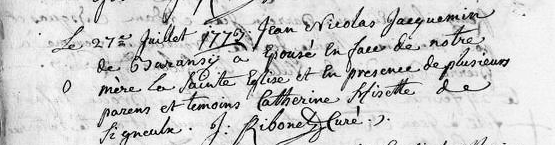 Le 27e Juillet 1772. Jean Nicolas Jacquemin
de Buransy a Epousé En face de notre
mère la Sainte Eglise et En presence de plusieurs
parens et temoins Catherine de
Signeulx. J. Ribonet Curé.